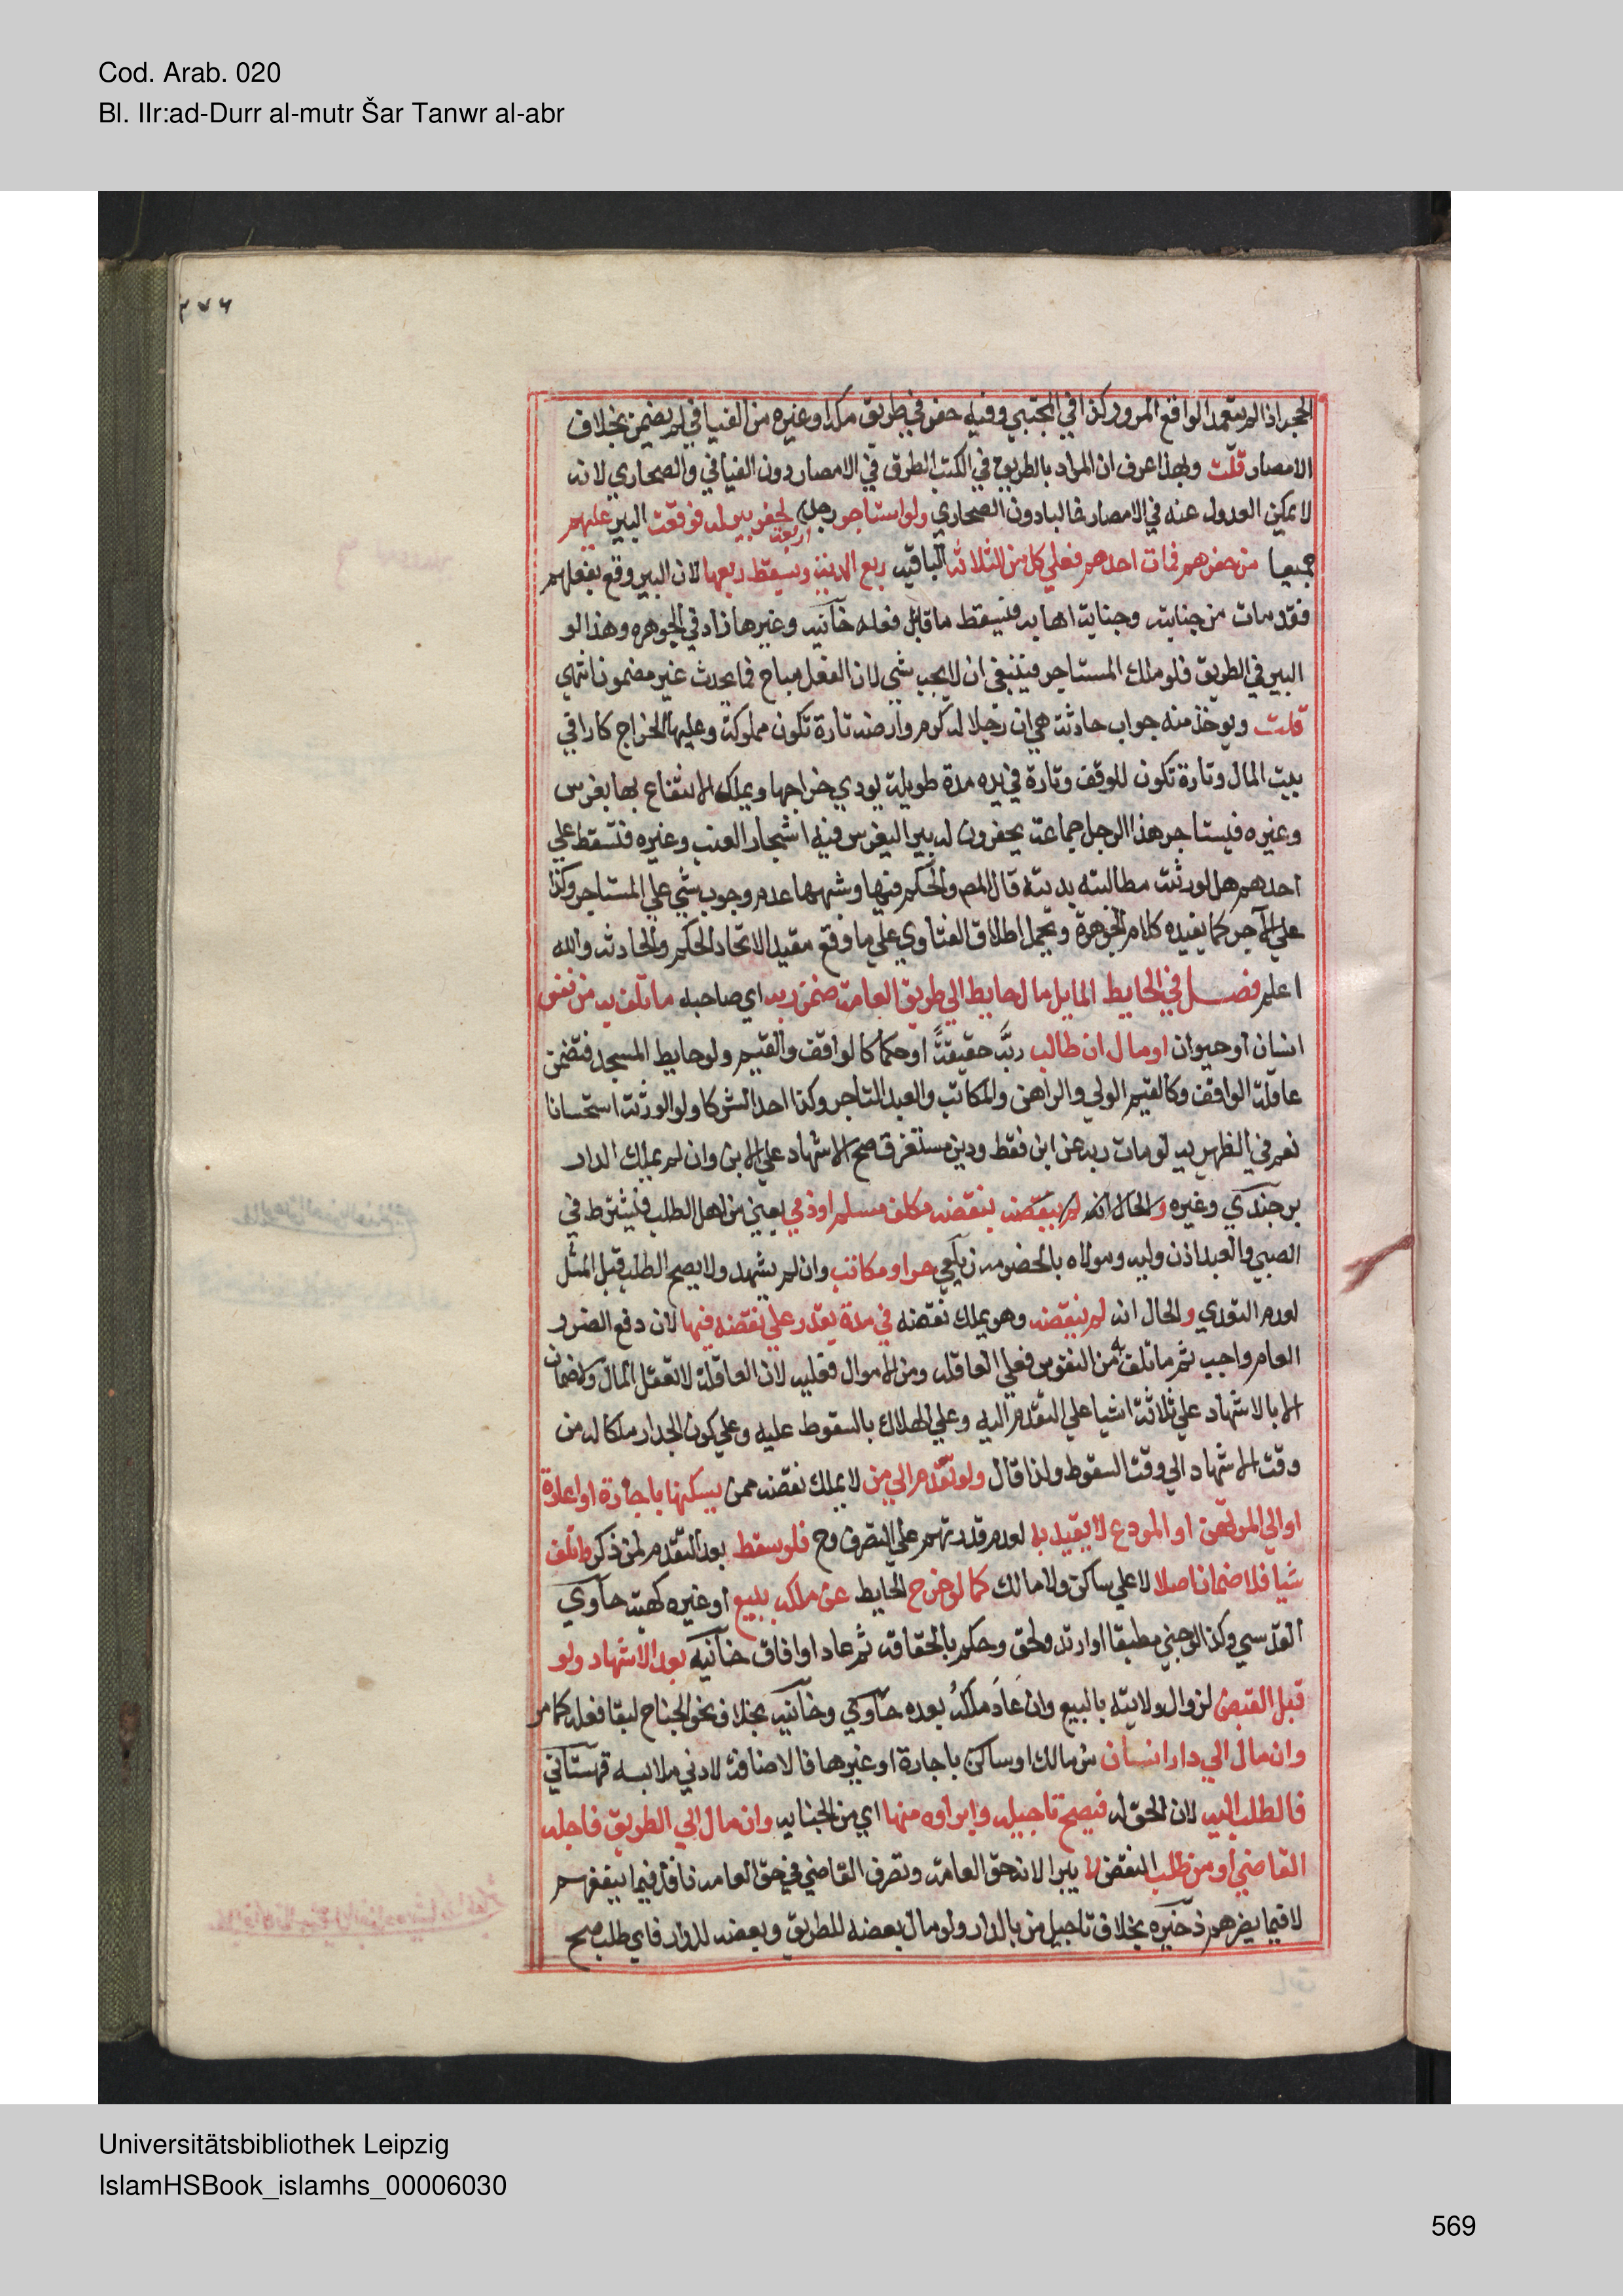 Cod. Arab. 020
Bl. IIr:ad-Durr al-mutr Šar Tanwr al-abr
٢٧٦
الحجر اذا لم يتعمد الواقع المرور كذا في المجتبي وفيه حفر في طريق مكة او غيره من الفيافي لم يضمن بخلاف
الامصار قلت وبهذا عرف ان المراد بالطريق في الكتب الطرق في الامصار دون الفيافي والصحاري لانه
لا يمكن العدول عنه في الامصار غالبا دون الصحاري ولو استاجر رجل اربعة لحفر بير له فوقعت البير عليهم
جميعا من حفرهم فمات احدهم فعلي كل من الثلاثة الباقيه ربع الدية ويسقط ربعها لان البير وقع بفعلهم
فقد مات من جنايته وجناية اصحابه فيسقط ما قابل فعله خانيه وغيرها زاد في الجوهره وهذا لو
البير في الطريق فلو ملك المستاجر فينبغي ان لا يجب شي لان الفعل مباح فما يحدث غير مضمون انتهي
قلت ويوخذ منه جواب حادثة هي ان رجلا له كرم وارضه تارة تكون مملوكة وعليها الخراج كاراضي
بيت المال وتارة تكون للوقف وتارة في يده مدة طويلة يودي خراجها ويملك الانتفاع بها بغرس
وغيره فيستاجر هذا الرجل جماعة يحفرون له بيرا ليغرس فيه اشجار العنب وغيره فتسقط علي
احدهم هل لورثته مطالبته بديته قال المص والحكم فيها وشبهها عدم وجوب شي علي المستاجر وكذا
علي الآجر كما يفيده كلام الجوهرة وتحمل اطلاق الفتاوي علي ما وقع مقيدا لاتحاد الحكم والحادثه والله
اعلم فصل في الحايط المايل مال حايط الي طريق العامة ضمن ربه اي صاحبه ما تلف به من نفس
انسان او حيوان او مال ان طالب ربه حقيقة او حكما كالواقف والقيم ولو حايط المسجد فتضمن
عاقلة الواقف وكالقيم الولي والراهن والمكاتب والعبد التاجر وكذا احد الشركا ولو الورثة استحسانا
نعم في الظهيريه لو مات ربه عن ابن فقط ودين مستغرق صح الاشهاد علي الابن وان لم يملك الدار
برجندي وغيره والحال انه لم ينقضه بنقضه مكلف مسلم او ذمي يعني من اهل الطلب فيشترط في
الصبي والعبد اذن وليه ومولاه بالخصومه زيلعي حر او مكاتب وان لم يشهد ولا يصح الطلب قبل الميل
لعدم التعدي والحال انه لم ينقضه وهو يملك نقضه في مدة يقدر علي نقضه فيها لان دفع الضرر
العام واجب ثم ما تلف به من النفوس فعلي العاقله ومن الاموال فعليه لان العاقلة لا تعقل المال ولا ضمان
الا بالاشهاد علي ثلاثة اشيا علي التقدم اليه وعلي الهلاك بالسقوط عليه وعلي كون الجدار ملكا له من
وقت الاشهاد الي وقت السقوط ولذا قال ولو تقدم الي من لا يملك نقضه ممن يسكنها باجارة او اعارة
او الي المرتهن او المودع لا يعتد به لعدم قدرتهم علي التصرف وح فلو سقط بعد التقدم لمن ذكر واتلف
شيا فلا ضمان اصلا لا علي ساكن ولا مالك كما لو خرج الحايط عن ملكه ببيع او غيره كهبة حاوي
القدسي وكذا لو جن مطبقا او ارتد ولحق وحكم بالحقاقه ثم عاد او افاق خانيه بعد الاشهاد ولو
قبل القبض لزوال ولايته بالبيع وان عاد ملكه بعده حاوي وخانيه بخلاف نحو الجناح لبقا فعله كما مر
وان مال الي دار انسان من مالك او ساكن باجارة او غيرها فالاضافة لادني ملابسه قهستاني
فالطلب اليه لان الحق له فيصح تاجيله وابراوه منها اي من الجنايه وان مال الي الطريق فاجله
القاضي او من طلب النقض لا يبرا لانه حق العامة وتصرف القاضي في حق العامه نافذ فيما ينفعهم
لا فيما يضرهم ذخيره بخلاف تاجيل من بالدار ولو مال بعضه للطريق وبعضه للدار فاي طلب صح
Universitätsbibliothek Leipzig
IslamHSBook_islamhs_00006030
569